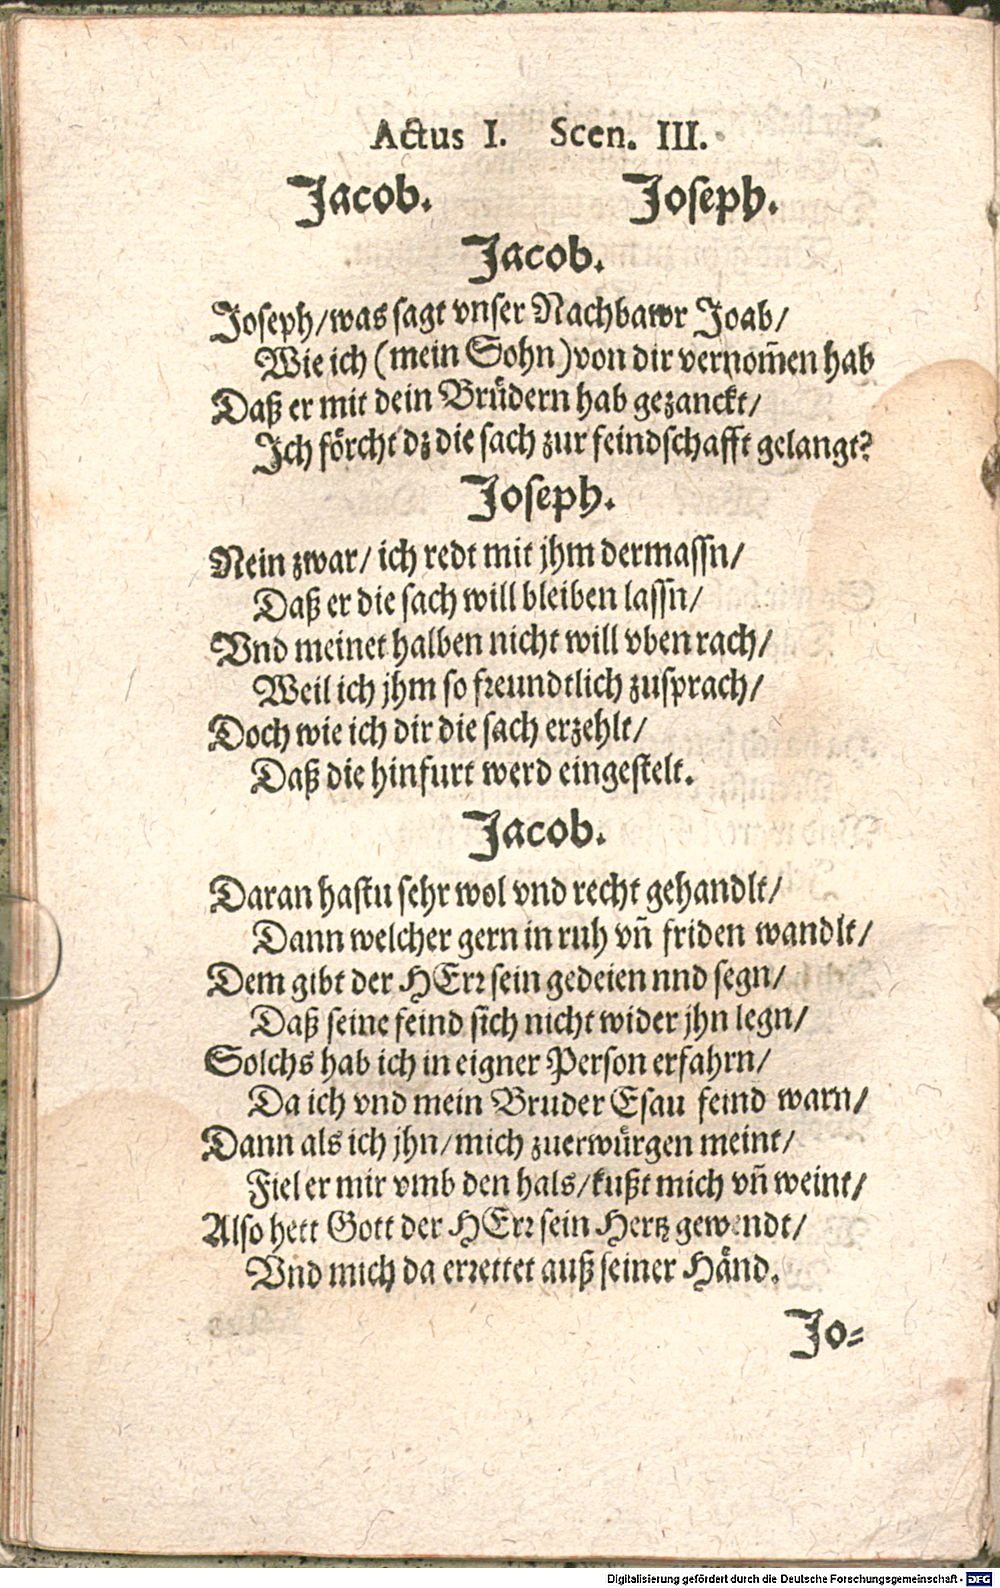 Actus I. Scen. III.
Jacob. Joseph.
Jacob.
Joseph/was sagt vnser Nachbawr Joab/
Wie ich (mein Sohn) von dir vernom̃en hab
Daß er mit dein Bruͤdern hab gezanckt/
Ich foͤrcht dz die sach zur feindschafft gelangt?
Joseph.
Nein zwar/ ich redt mit jhm dermassn/
Daß er die sach will bleiben lassn/
Vnd meinet halben nicht will vben rach/
Weil ich jhm so freundtlich zusprach/
Doch wie ich dir die sach erzehlt/
Daß die hinfurt werd eingestelt.
Jacob.
Daran hastu sehr wol vnd recht gehandlt/
Dann welcher gern in ruh vñ friden wandlt/
Dem gibt der HErr sein gedeien nnd segn/
Daß seine feind sich nicht wider jhn legn/
Solchs hab ich in eigner Person erfahrn/
Da ich vnd mein Bruder Esau feind warn/
Dann als ich jhn/mich zuerwuͤrgen meint/
Fiel er mir vmb den hals/kußt mich vñ weint/
Also hett Gott der HErr sein Hertz gewendt/
Vnd mich da errettet auß seiner Haͤnd.
Jo=
Digitalisierung gefördert durch die Deutsche Forschungsgemeinschaft - DFG